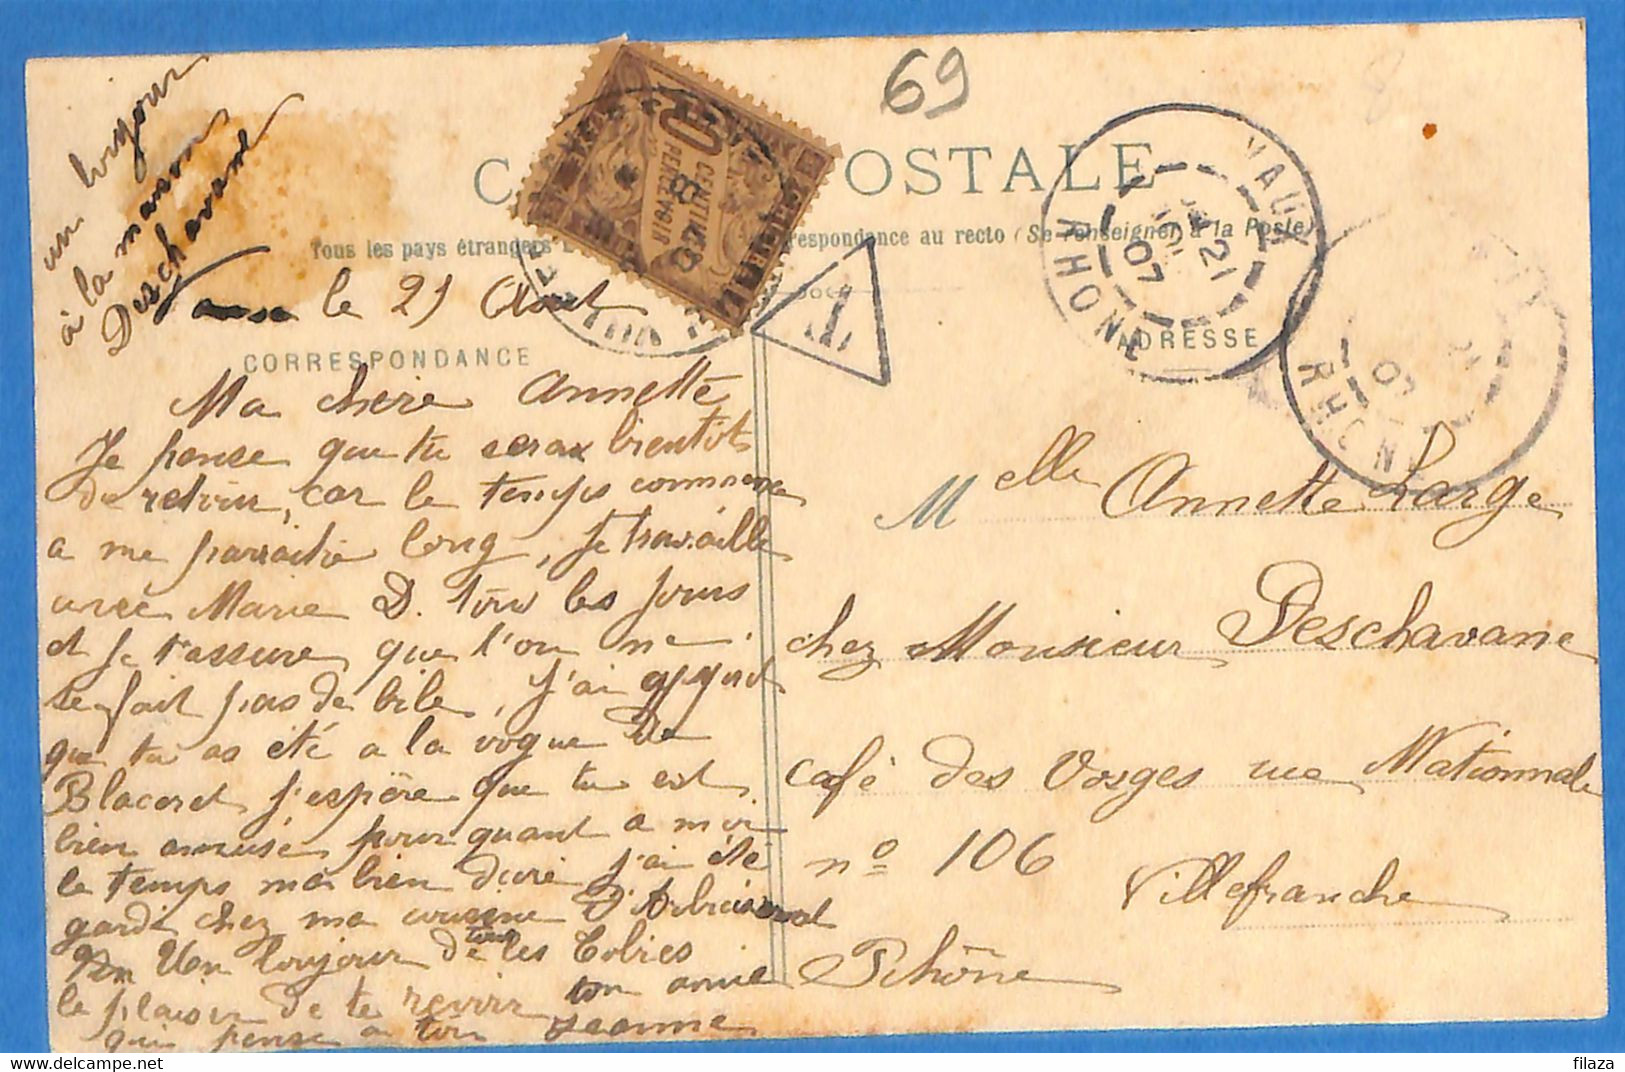 un bonjour
à la maison
Deschavane
69
C POSTALE
Tous les pays étrangers
respondance au recto (Se renseigner à la Poste)
10
CENTIMES
À PERCEVOIR
T
VAUX
21
07
RHONE
21
07
RHONE
le 21 Aout
CORRESPONDANCE
ADRESSE
Ma chère Annette
Je pense que tu seras bientôt
de retour, car le temps commence
a me parraitre long, je travaille
avec Marie D. tous les jours
et je t'assure que l'on ne
se fait pas de bile, j'ai appris
que tu as été a la vogue de
Blaceret j'espère que tu est
bien amusé pour quant a moi
le temps m'a bien duré j'ai été
garde chez ma cousine D'Arbuissonnat
toujour de tous les
le plaisir de te revoir ton amie
qui pense a toi Jeanne
Melle Annette Large
chez Monsieur Deschavane
café des Vosges rue Nationnale
no 106
Villefranche
Rhône
filaza